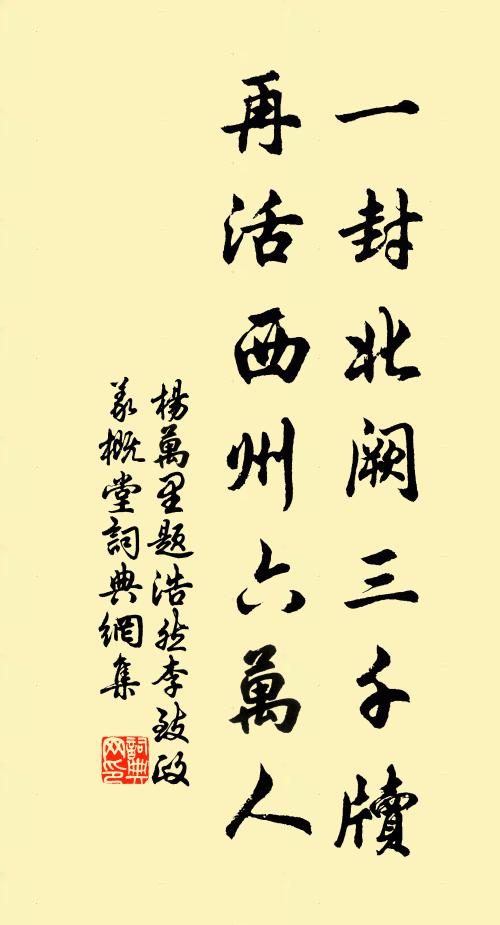 一封北阙三千牍
再活西州六萬人
楊萬里题浩然李致政
義概堂詞典網集
詞典網印